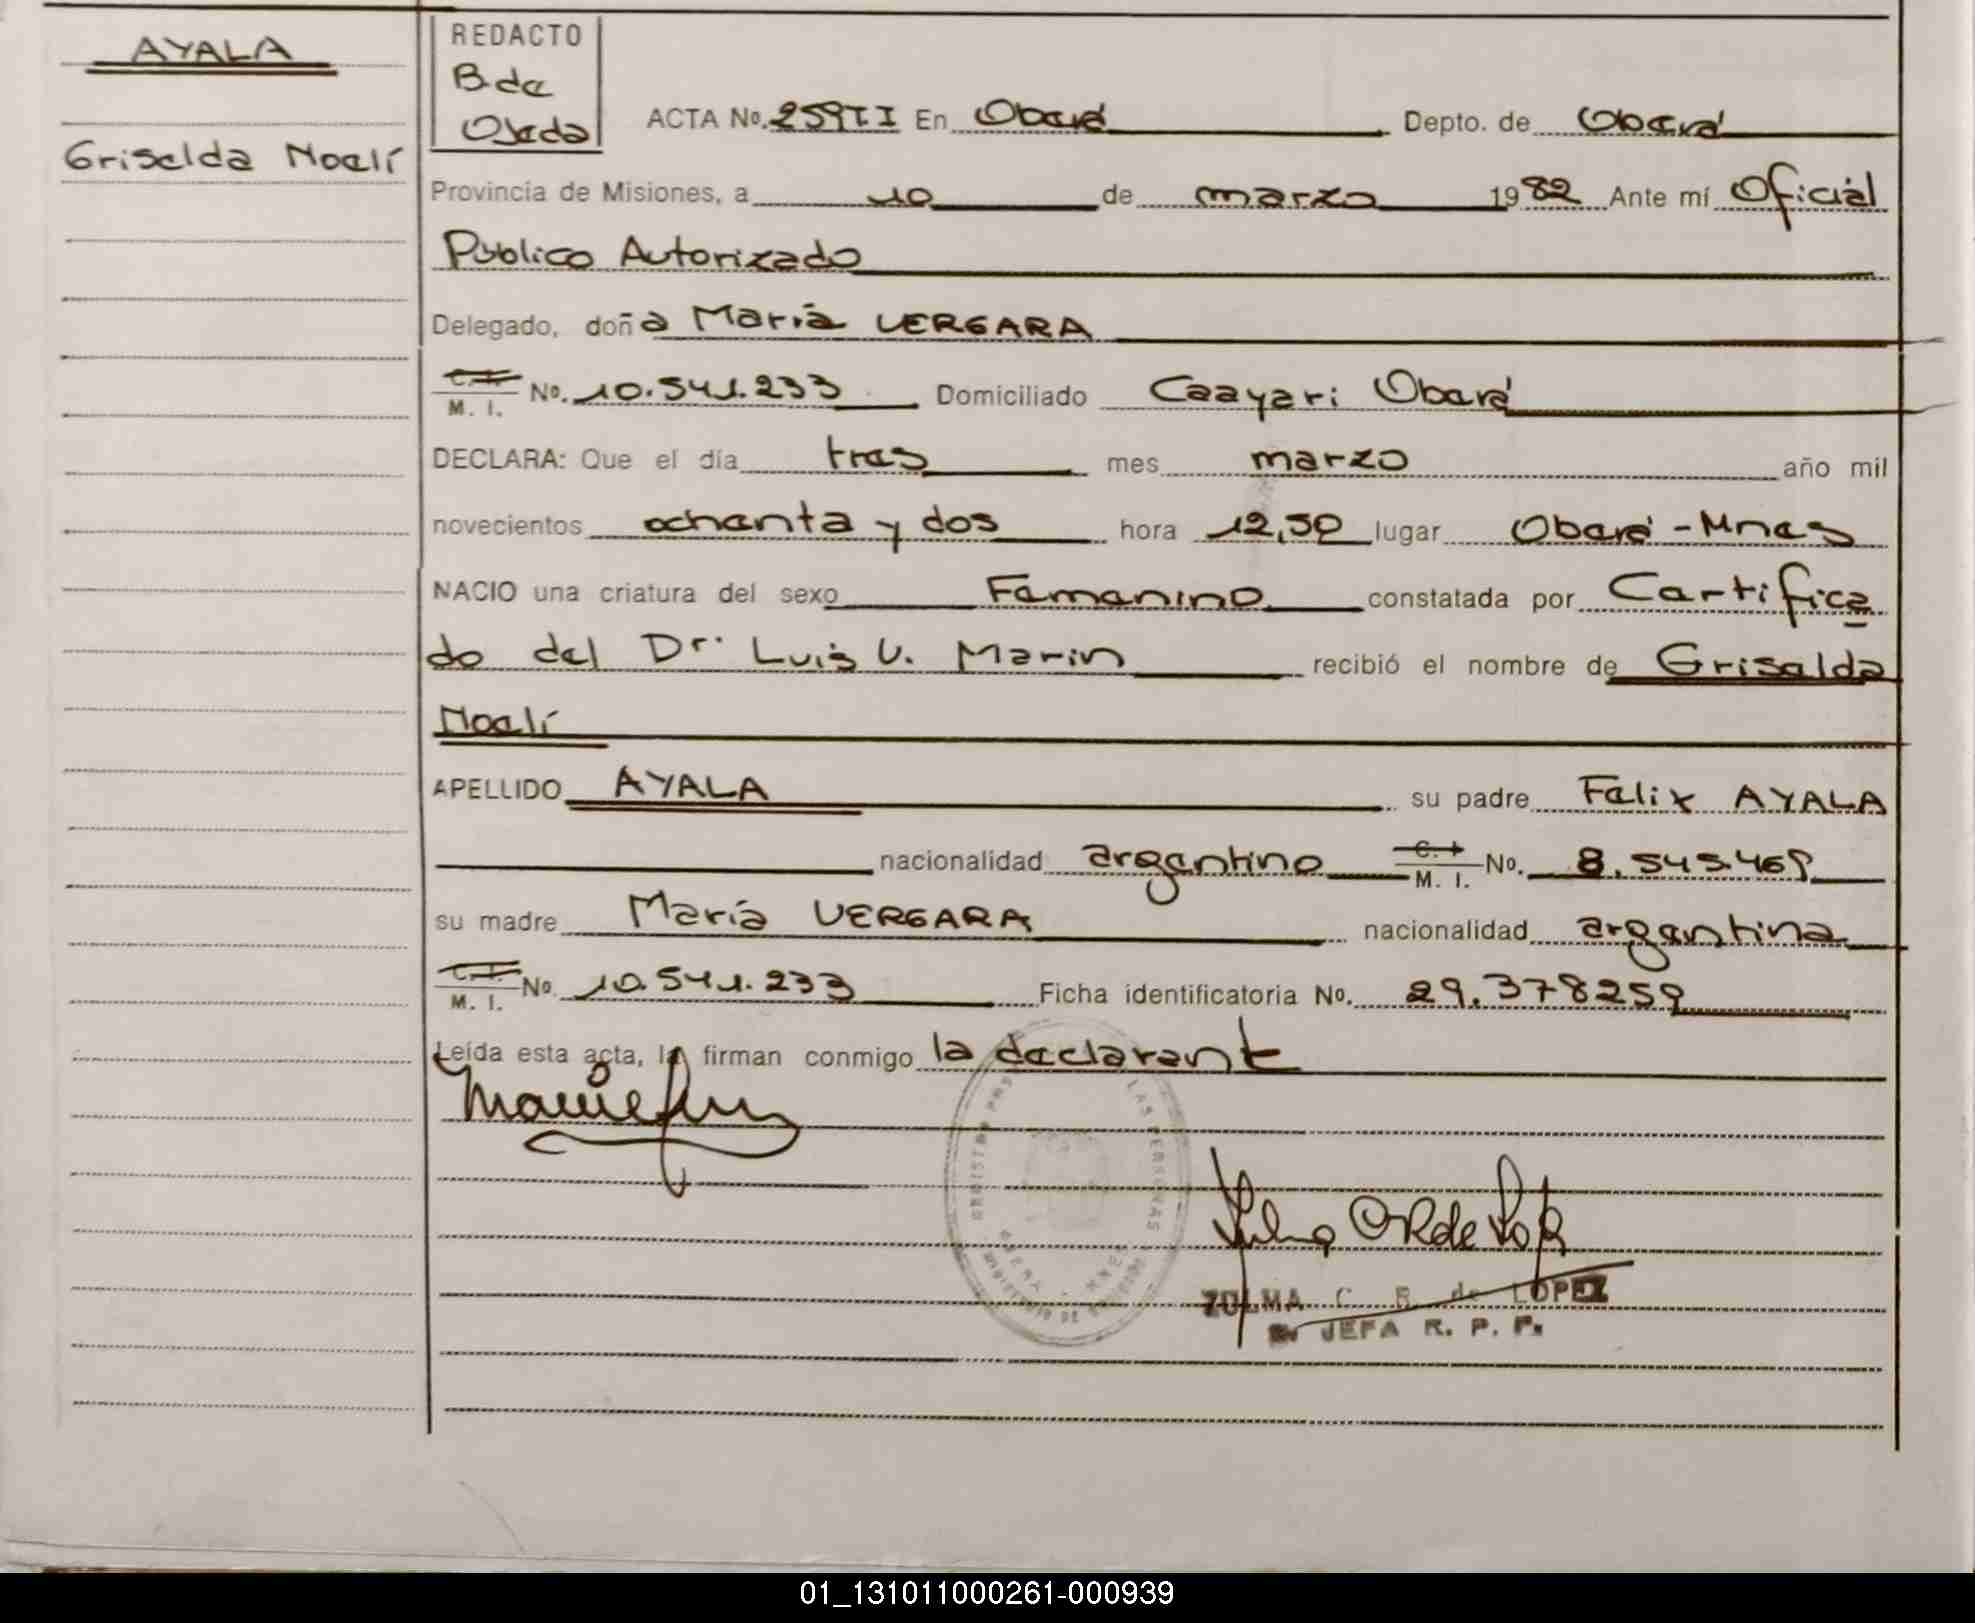 AYALA
Griselda Noelí
REDACTO
B. de
Ojeda
ACTA No. 259 T I En Oberá Depto. de Oberá
Provincia de Misiones, a 10 de marzo 1982 Ante mí Oficial
Público Autorizado
Delegado, doña María VERGARA
C. I. M. I. No. 10.541.233 Domiciliado Caayari Oberá
DECLARA: Que el día tres mes marzo año mil
novecientos ochenta y dos hora 12,50 lugar Oberá - Mnes
NACIO una criatura del sexo Femenino constatada por Certifica
do del Dr. Luis V. Marin recibió el nombre de Griselda
Noelí
APELLIDO AYALA su padre Felix AYALA
nacionalidad argentino C. I. M. I. No. 8.545.469
su madre María VERGARA nacionalidad argentina
C. I. M. I. No. 10.541.233 Ficha identificatoria No. 29.378259
Leída esta acta, la firman conmigo la declarante
ZULMA C. R. de LOPEZ
JEFA R. P. P.
01_131011000261-000939